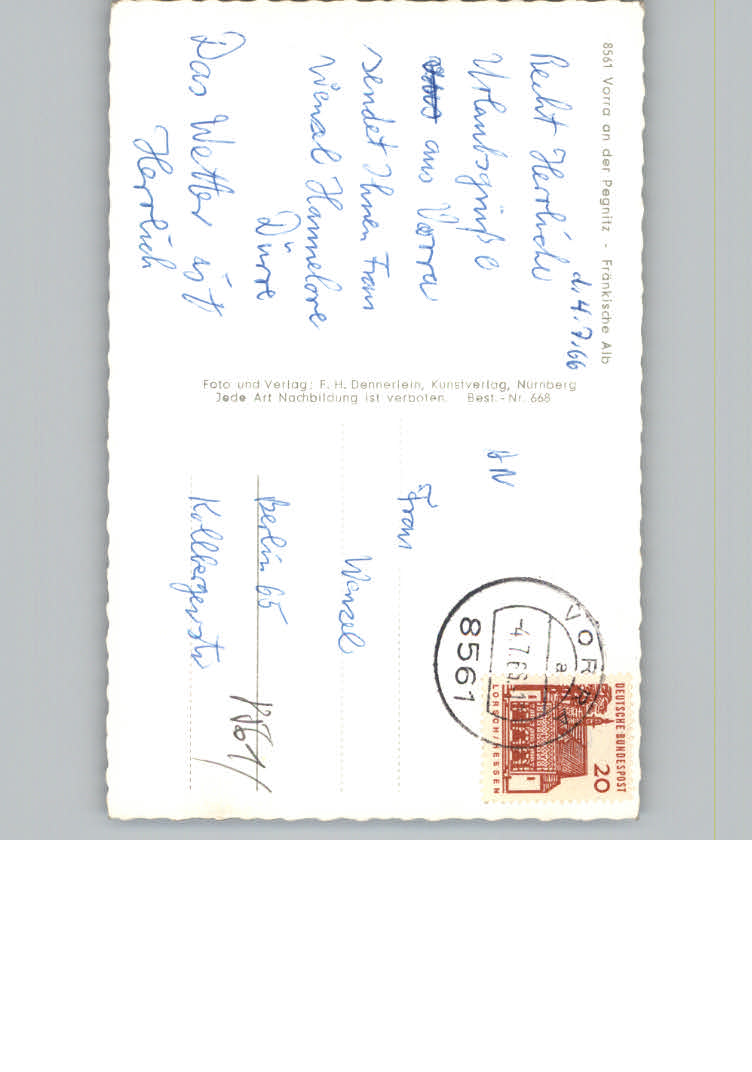 8561 Vorra an der Pegnitz - Fränkische Alb
d. 4.7.66
Recht Herrliche
Urlaubsgrüße
aus Vorra
sendet Ihnen Frau
Hannelore
Dürre
Das Wetter ist
Herrlich
Foto und Verlag: F. H. Dennerlein, Kunstverlag, Nürnberg
Jede Art Nachbildung ist verboten. Best.-Nr. 668
AN
Frau
Wenzel
Berlin 65
Kollbergerstr
DEUTSCHE BUNDESPOST
20
LORSCH/HESSEN
VORRA
a
-4.7.66
8561